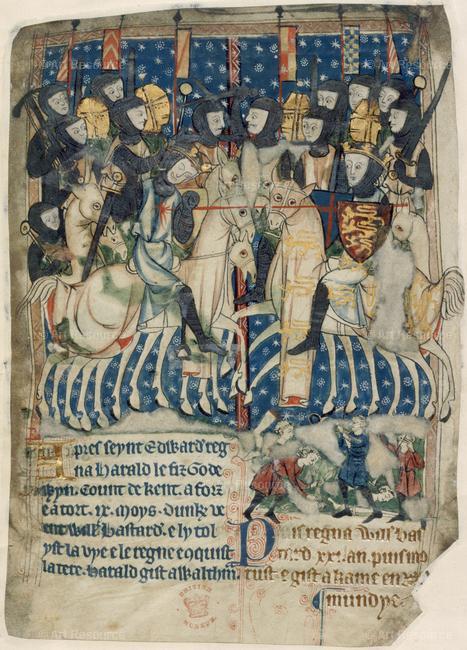 pres seynt Edward reg
na Harald le fiz Gode
wyn. Count de kent. a forz
e a tort. ix. moys. dunk ve
ent Will Bastard. e ly tol
yst la vye e le regne conquist
la tere. Harald gist a Walthm
Puis regna Will bas
tard. xxi. an. puis mo
rust. e gist a kame en
mundye.
BRITISH
MUSEUM
Art Resource